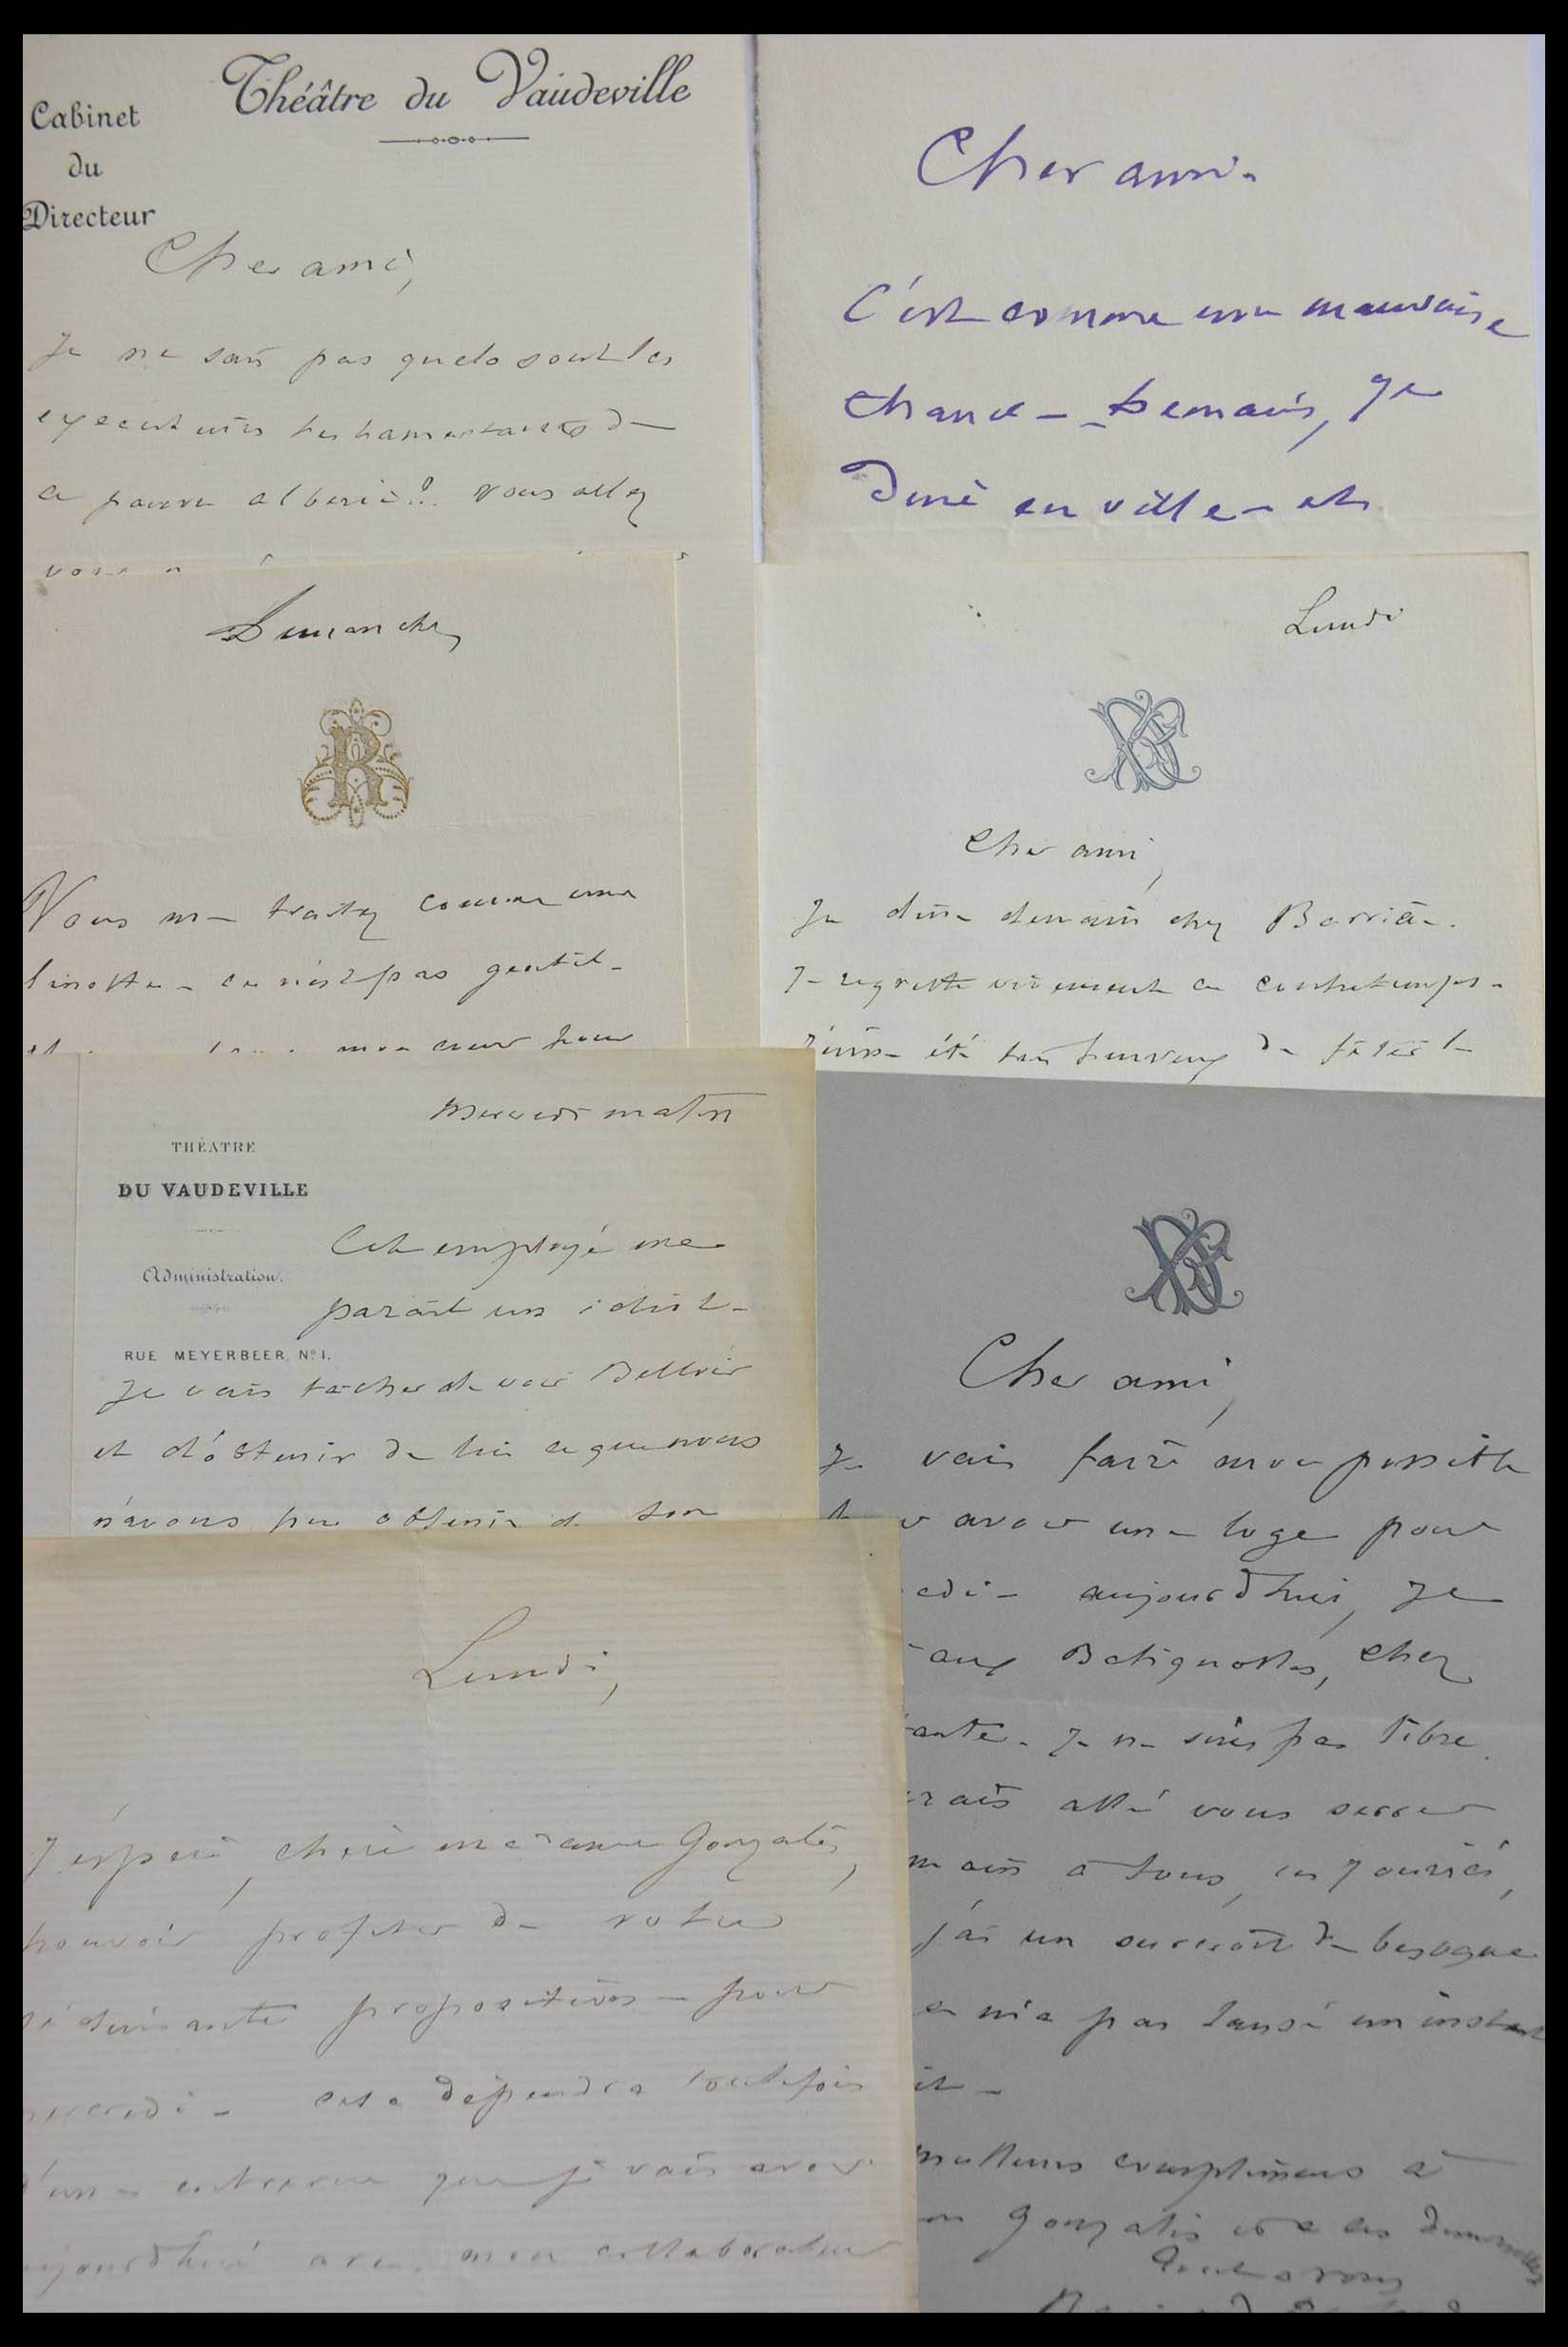 Théâtre du Vaudeville
Cabinet
du
Directeur
Cher ami,
Je ne sais pas quels sont les
exécuteurs testamentaires de
ce pauvre Alberic? Vous allez
Cher ami.
C'est comme une mauvaise
chance - Demain, je
dine en ville - et
Dimanche,
R
Vous me traitez comme une
linotte - ce n'est pas gentil -
mon cœur pour
Lundi
Cher ami,
Je dine demain chez Barrière.
Je regrette vivement ce contretemps -
J'eusse été très heureux de fêter le
Mercredi matin
THÉATRE
DU VAUDEVILLE
Administration.
RUE MEYERBEER, Nº 1.
Cet employé me
parait un idiot -
Je vais tâcher de voir
et d'obtenir de lui ce que nous
n'avons pu obtenir de son
Cher ami,
Je vais faire mon possible
avoir une loge pour
edi - aujourd'hui, je
aux Batignolles, chez
tante. Je ne suis pas libre.
rais allé vous serrer
main à tous, ces jours ci,
j'ai un surcroit de besogne
e m'a pas laissé un instant
it -
meilleurs compliments à
Gonzalès et à ces demoiselles
Tout à vous
Lundi,
J'espère, chère madame Gonzalès,
pouvoir profiter de votre
séduisante proposition - pour
mercredi - cela dépendra toutefois
d'une entrevue que je vais avoir
aujourd'hui avec mon collaborateur